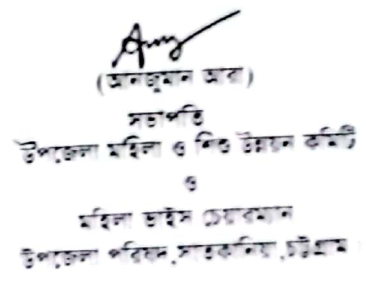 (আনজুমান আরা)
সভাপতি
উপজেলা মহিলা ও শিশু উন্নয়ন কমিটি
ও
মহিলা ভাইস চেয়ারম্যান
উপজেলা পরিষদ, সাতকানিয়া, চট্টগ্রাম।